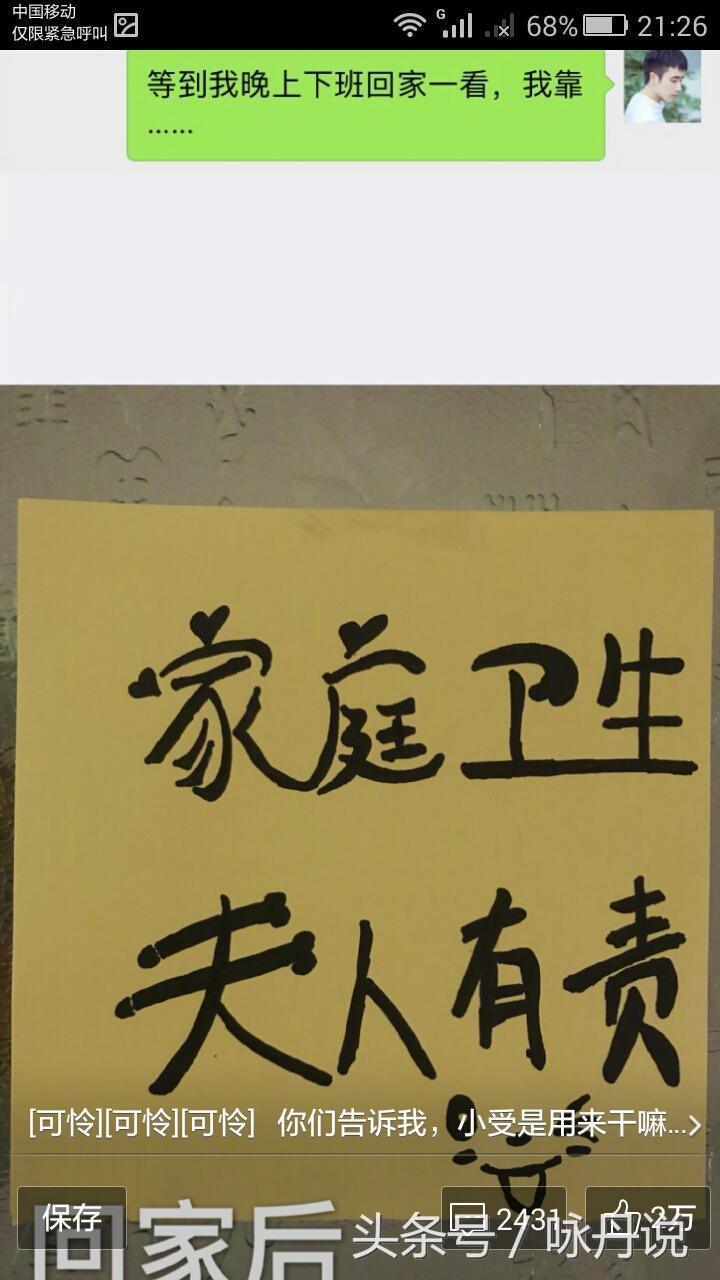 中国移动
仅限紧急呼叫
G
68%
21:26
等到我晚上下班回家一看，我靠
……
家庭卫生
夫人有责
[可怜][可怜][可怜] 你们告诉我，小受是用来干嘛...
保存
2431
2万
回家后
头条号 / 咏丹说